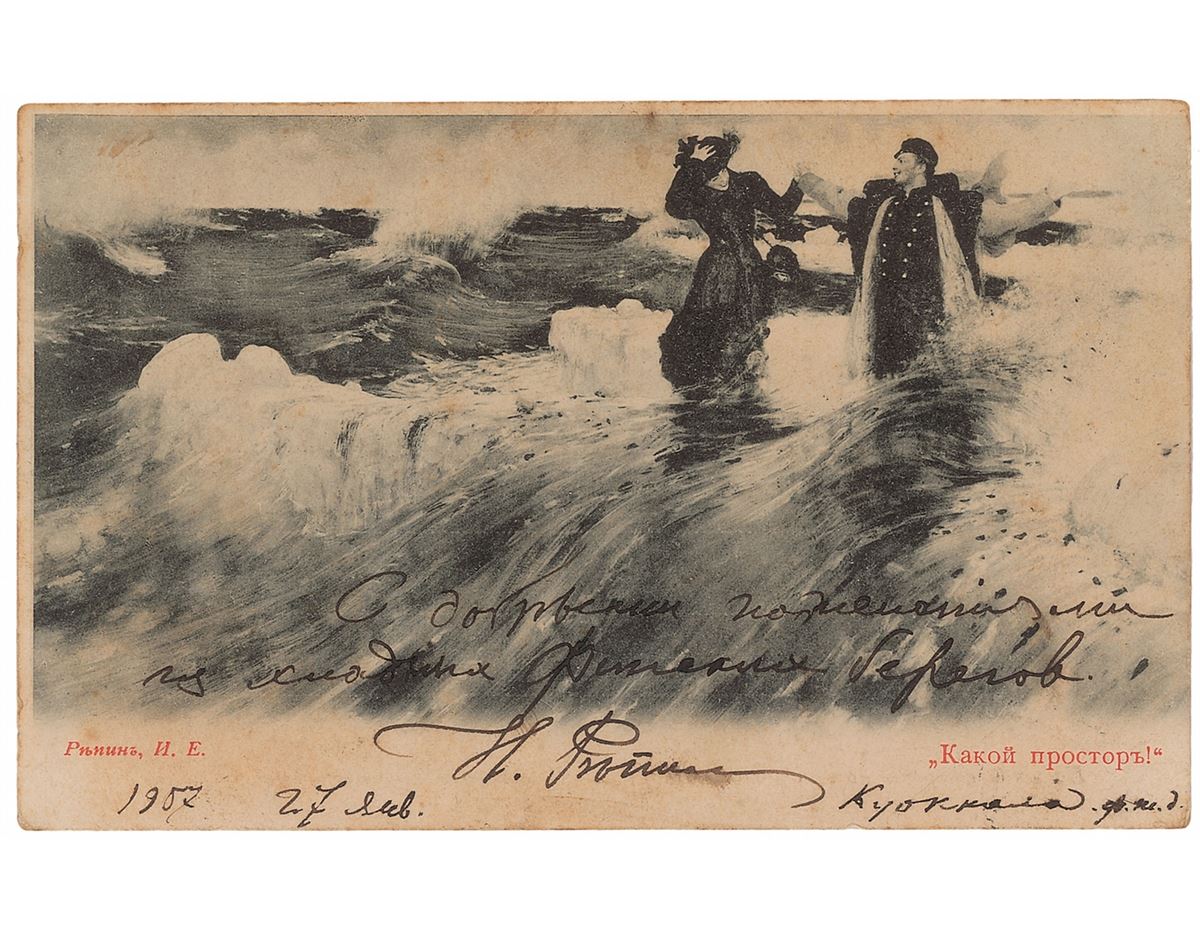 С добрыми пожеланиями
из хладных Финских берегов.
И. Репин
Рѣпинъ, И. Е.
„Какой просторъ!“
1907 27 Янв.
Куоккала. ф. ж. д.